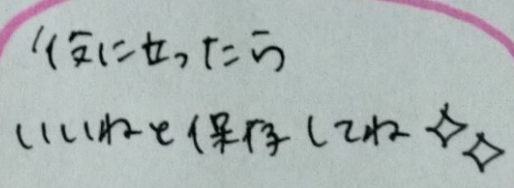 役に立ったら
いいねと保存してね